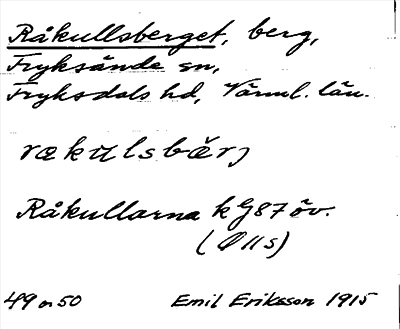 Råkullsberget, berg,
Fryksände sn,
Fryksdals hd, Värml. län.
Råkullarna k G87 öv.
49 o 50 Emil Eriksson 1915